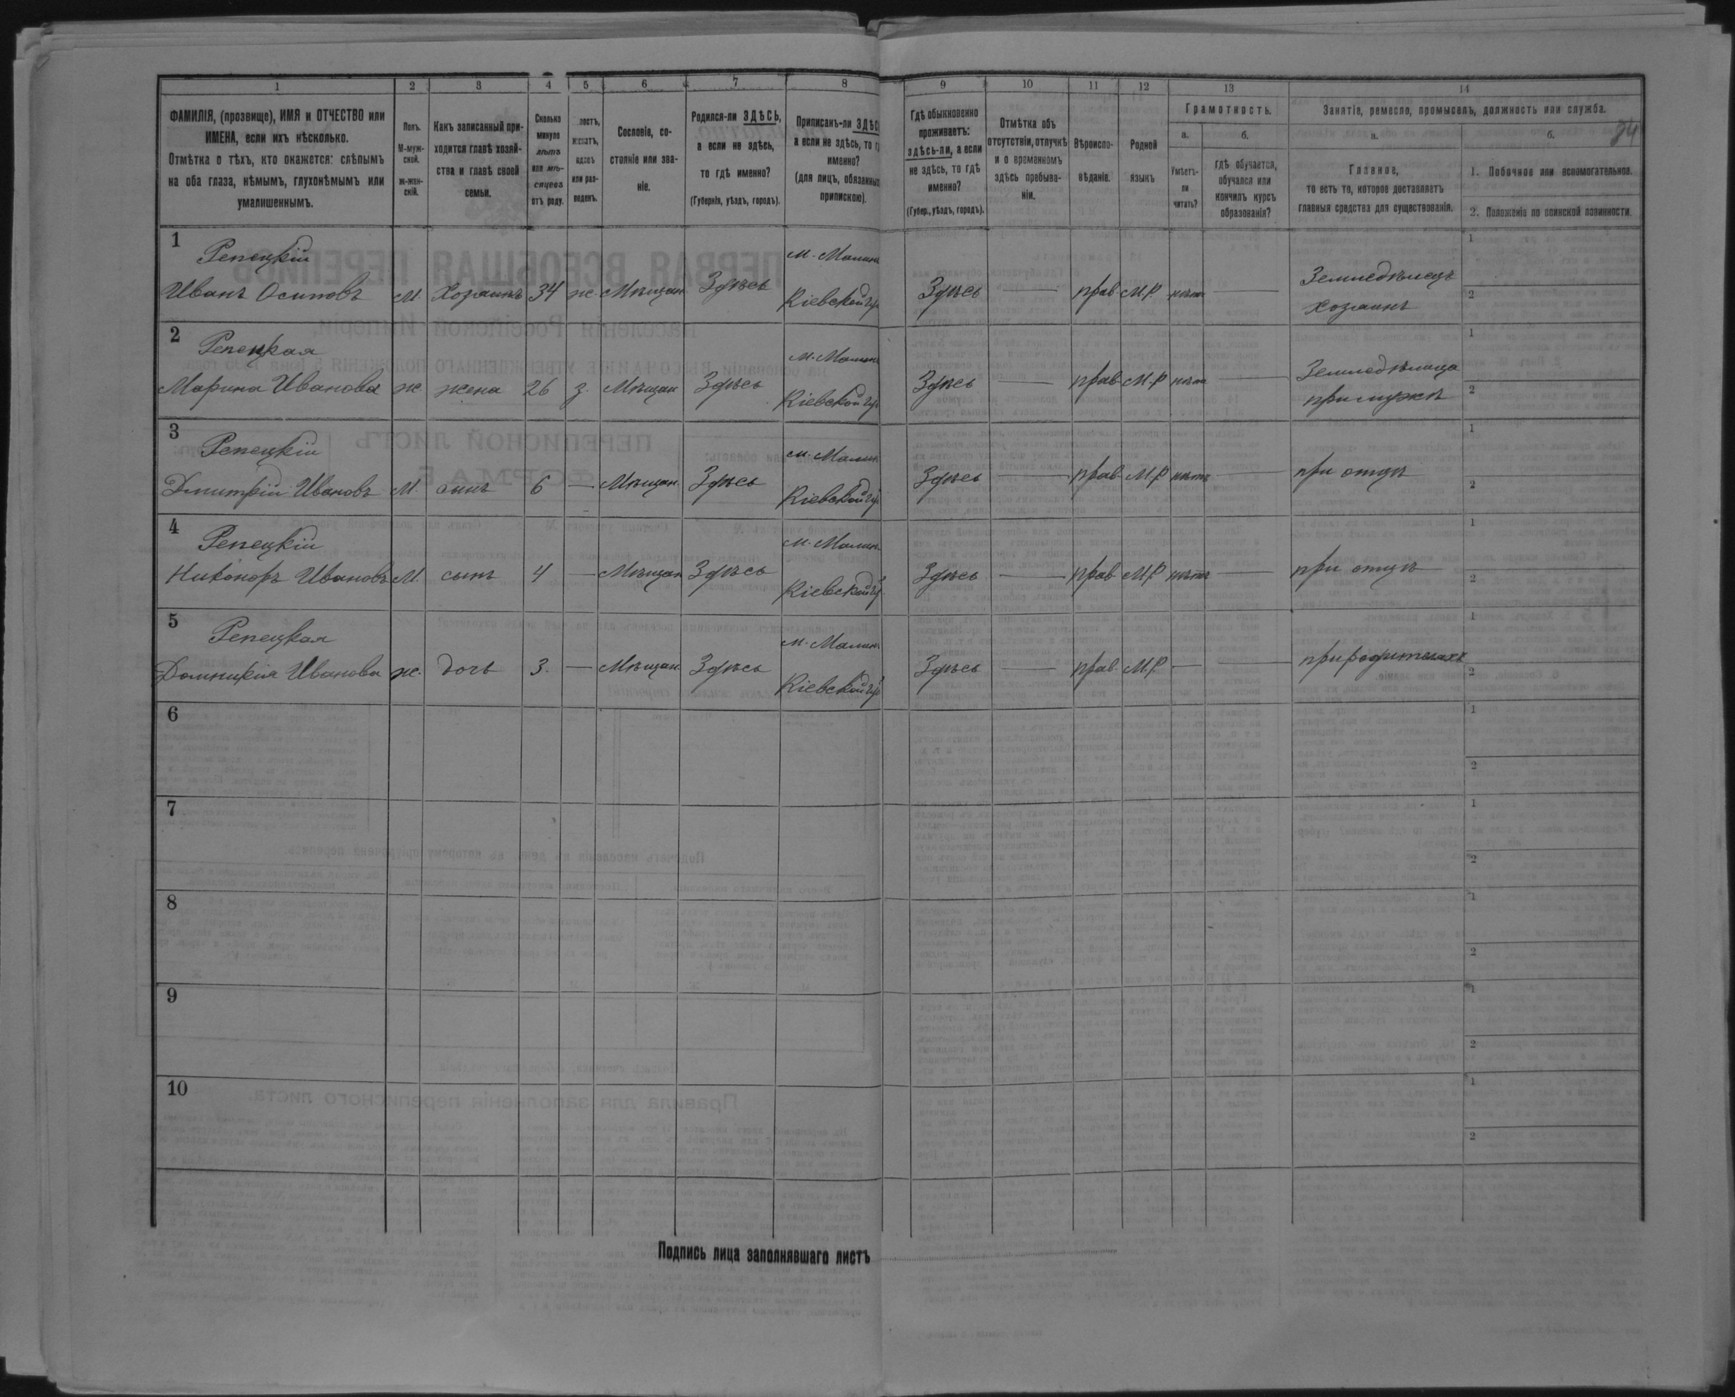 1 2 3 4 5 6 7 8 9 10 11 12 13 14
ФАМИЛІЯ, (прозвище), ИМЯ и ОТЧЕСТВО или
ИМЕНА, если ихъ нѣсколько.
Отмѣтка о тѣхъ, кто окажется: слѣпымъ
на оба глаза, нѣмымъ, глухонѣмымъ или
умалишеннымъ.
Полъ.
М-муж-
ской.
ж-жен-
скій.
Какъ записанный при-
ходится главѣ хозяй-
ства и главѣ своей
семьи.
Сколько
минуло
лѣтъ
или мѣ-
сяцевъ
отъ роду.
Холостъ,
женатъ,
вдовъ
или раз-
веденъ.
Сословіе, со-
стояніе или зва-
ніе.
Родился-ли ЗДѢСЬ,
а если не здѣсь,
то гдѣ именно?
(Губернія, уѣздъ, городъ).
Приписанъ-ли ЗДѢСЬ,
а если не здѣсь, то гдѣ
именно?
(для лицъ, обязанныхъ
припискою).
Гдѣ обыкновенно
проживаетъ:
здѣсь-ли, а если
не здѣсь, то гдѣ
именно?
(Губер., уѣздъ, городъ).
Отмѣтка объ
отсутствіи, отлучкѣ
и о временномъ
здѣсь пребыва-
ніи.
Вѣроиспо-
вѣданіе.
Родной
языкъ
Грамотность.
а.
Умѣетъ-
ли
читать?
б.
гдѣ обучается,
обучался или
кончилъ курсъ
образованія?
Занятіе, ремесло, промыселъ, должность или служба.
а.
Главное,
то есть то, которое доставляетъ
главныя средства для существованія.
б.
84
1. Побочное или вспомогательное.
2. Положеніе по воинской повинности.
1
Репецкій м. Малин 1
Иванъ Осиповъ М. Хозяинъ 34 ж. Мѣщан Здѣсь Кіевской гу. Здѣсь — прав. М.Р. нѣтъ — Земледѣлецъ
хозяинъ 2
2
Репецкая м. Малин 1
Марина Иванова ж жена 26 з. Мѣщан Здѣсь Кіевской гу. Здѣсь — прав. М.Р нѣтъ — Земледѣлица
при мужѣ 2
3
Репецкій м. Малин 1
Дмитрій Ивановъ М. сынъ 6 — Мѣщан. Здѣсь Кіевской гу. Здѣсь — прав. М.Р нѣтъ — при отцѣ 2
4
Репецкій м. Малин 1
Никоноръ Ивановъ М. сынъ 4 — Мѣщан Здѣсь Кіевской гу. Здѣсь — прав М.Р нѣтъ — при отцѣ 2
5
Репецкая м. Малин 1
Домникія Иванова ж. дочь 3. — Мѣщан. Здѣсь Кіевской гу. Здѣсь — прав. М.Р — — при родителяхъ 2
6 1
2
7 1
2
8 1
2
9 1
2
10 1
2
Подпись лица заполнявшаго листъ